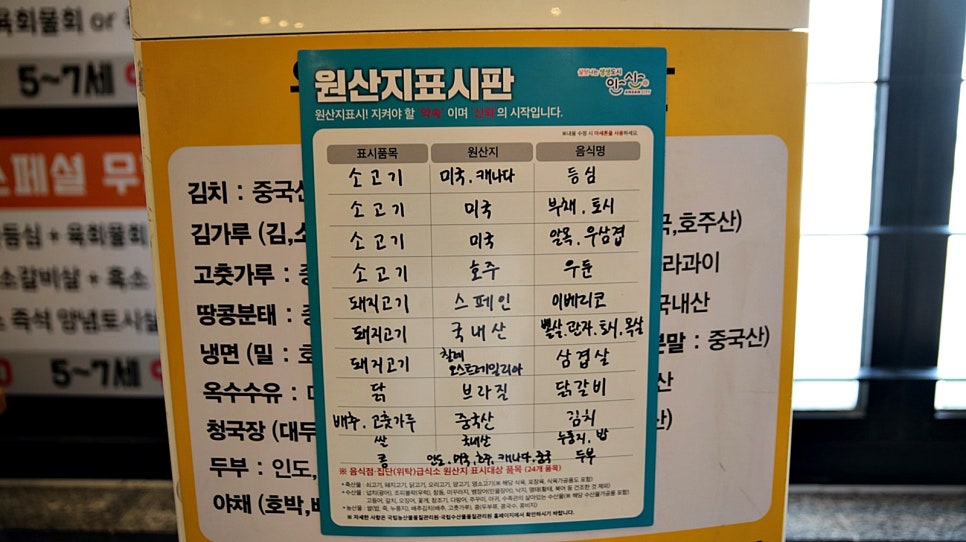 육회물회 or
5~7세
스페셜 무
등심 * 육회물회
소갈비살 * 흑소
즉석 양념토시살
5~7세
원산지표시판
살맛나는 생생도시
안산
ANSAN CITY
원산지표시! 지켜야 할 약속 이며 신뢰 의 시작입니다.
※내용 수정 시 아세톤을 사용하세요
표시품목 원산지 음식명
소고기 미국.캐나다 등심
소고기 미국 부채.토시
소고기 미국 알목.우삼겹
소고기 호주 우둔
돼지고기 스페인 이베리코
돼지고기 국내산 뽈살.관자.토시.목살
돼지고기 칠레 오스트레일리아 삼겹살
닭 브라질 닭갈비
배추.고춧가루 중국산 김치
쌀 국내산 누룽지.밥
콩 인도,미국,호주,캐나다,중국 두부
※ 음식점·집단(위탁)급식소 원산지 표시대상 품목 (24개 품목)
※ 자세한 사항은 국립농산물품질관리원·국립수산물품질관리원 홈페이지에서 확인하시기 바랍니다.
김치 : 중국산
김가루 (김,소 국,호주산)
고춧가루 : 라과이
땅콩분태 : 국내산
냉면 (밀 : 호 분말 : 중국산)
옥수수유 : 산
청국장 (대두
두부 : 인도,
야채 (호박,